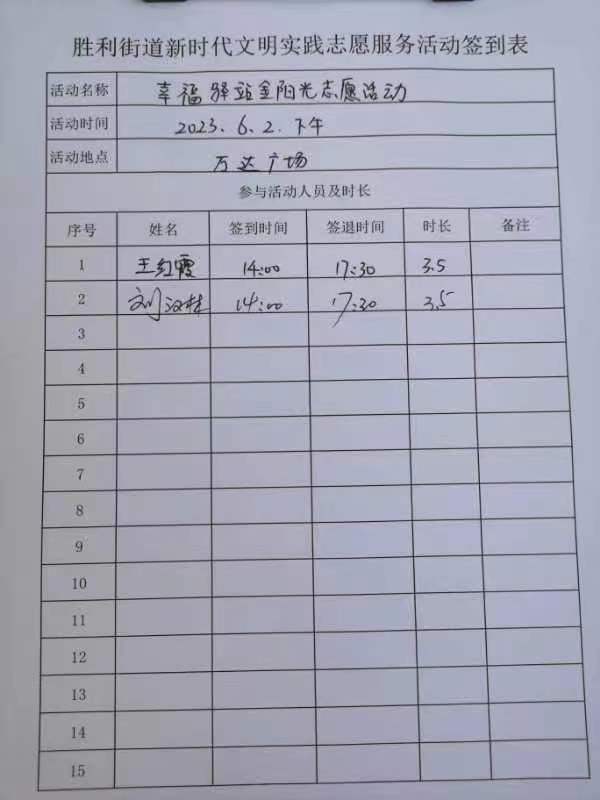 胜利街道新时代文明实践志愿服务活动签到表
活动名称 幸福驿站金阳光志愿活动
活动时间 2023、6、2. 下午
活动地点 万达广场
参与活动人员及时长
序号 姓名 签到时间 签退时间 时长 备注
1 王红霞 14:00 17:30 3.5
2 刘汉桂 14:00 17:30 3.5
3
4
5
6
7
8
9
10
11
12
13
14
15